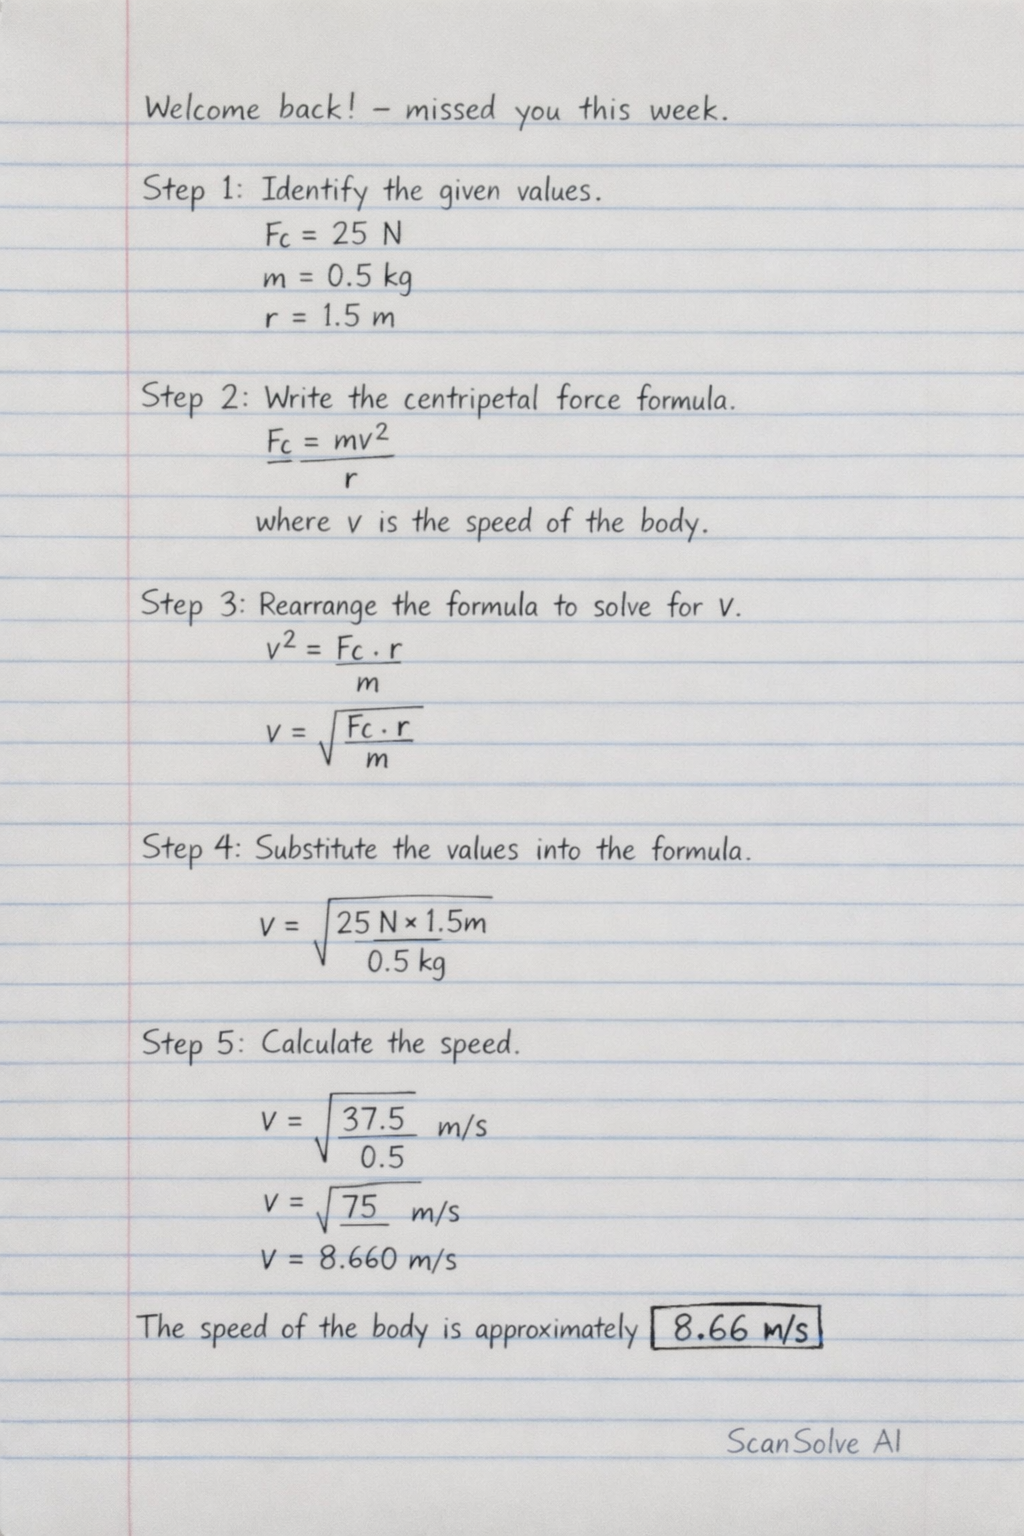 Welcome back! – missed you this week.
Step 1: Identify the given values.
Fc = 25 N
m = 0.5 kg
r = 1.5 m
Step 2: Write the centripetal force formula.
Fc = mv²
r
where v is the speed of the body.
Step 3: Rearrange the formula to solve for v.
v² = Fc · r
m
v = √ Fc · r
m
Step 4: Substitute the values into the formula.
v = √ 25 N × 1.5m
0.5 kg
Step 5: Calculate the speed.
v = √ 37.5 m/s
0.5
v = √ 75 m/s
v = 8.660 m/s
The speed of the body is approximately 8.66 m/s
ScanSolve AI